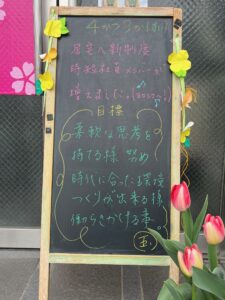 居宅へ新制度
時短社員メンバーが
増えました。
目標
柔軟な思考を
持てる様 努め
時代に合った環境
つくりが出来る様
働らきかける事。